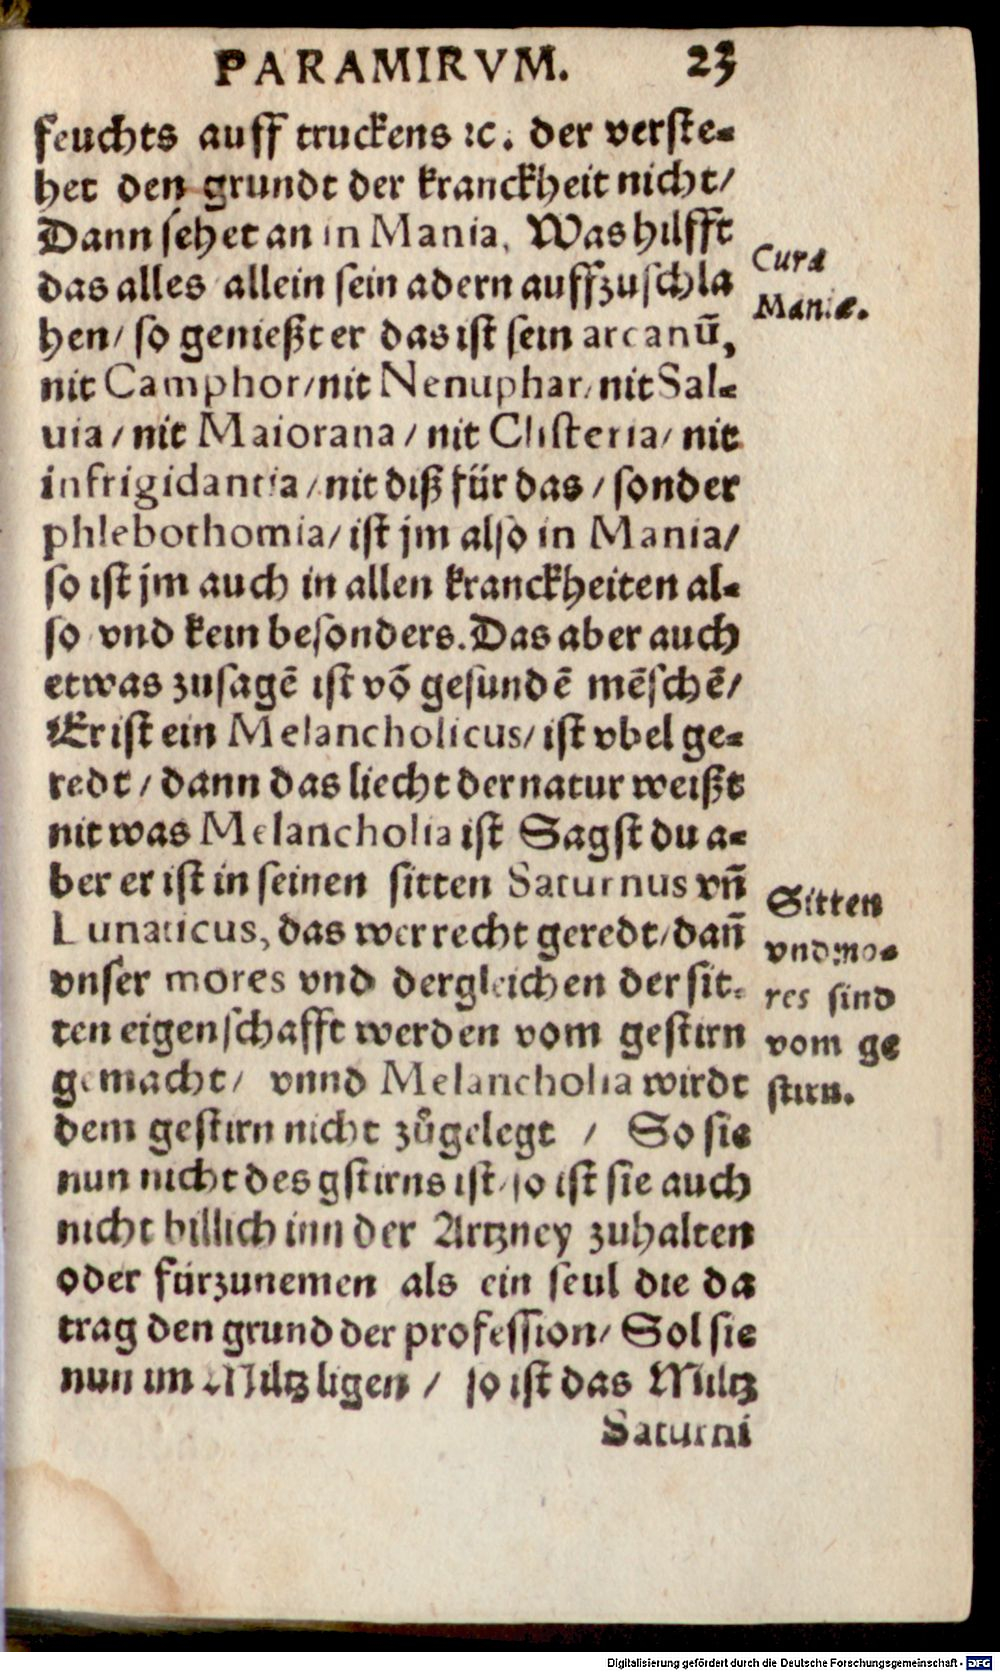 PARAMIRVM. 23
feuchts auff truckens ꝛc. der verste-
het den grundt der kranckheit nicht/
Dann sehet an in Mania, Was hilfft
das alles allein sein adern auffzuschla
hen/ so genießt er das ist sein arcanū,
nit Camphor/nit Nenuphar/nit Sal-
uia/ nit Maiorana/ nit Clisteria/ nit
infrigidantia/nit diß für das/ sonder
phlebothomia/ist jm also in Mania/
so ist jm auch in allen kranckheiten al-
so vnd kein besonders. Das aber auch
etwas zusagē ist vō gesundē mēschē/
Er ist ein Melancholicus/ist vbel ge-
redt/ dann das liecht der natur weißt
nit was Melancholia ist Sagst du a-
ber er ist in seinen sitten Saturnus vñ
Lunaticus, das wer recht geredt/dañ
vnser mores vnd dergleichen der sit-
ten eigenschafft werden vom gestirn
gemacht/ vnnd Melancholia wirdt
dem gestirn nicht zůgelegt / So sie
nun nicht des gstirns ist/so ist sie auch
nicht billich inn der Artzney zuhalten
oder fürzunemen als ein seul die da
trag den grund der profession/ Sol sie
nun im Miltz ligen / so ist das Miltz
Saturni
Cura
Maniæ.
Sitten
vnd mo-
res sind
vom ge
stirn.
Digitalisierung gefördert durch die Deutsche Forschungsgemeinschaft - DFG